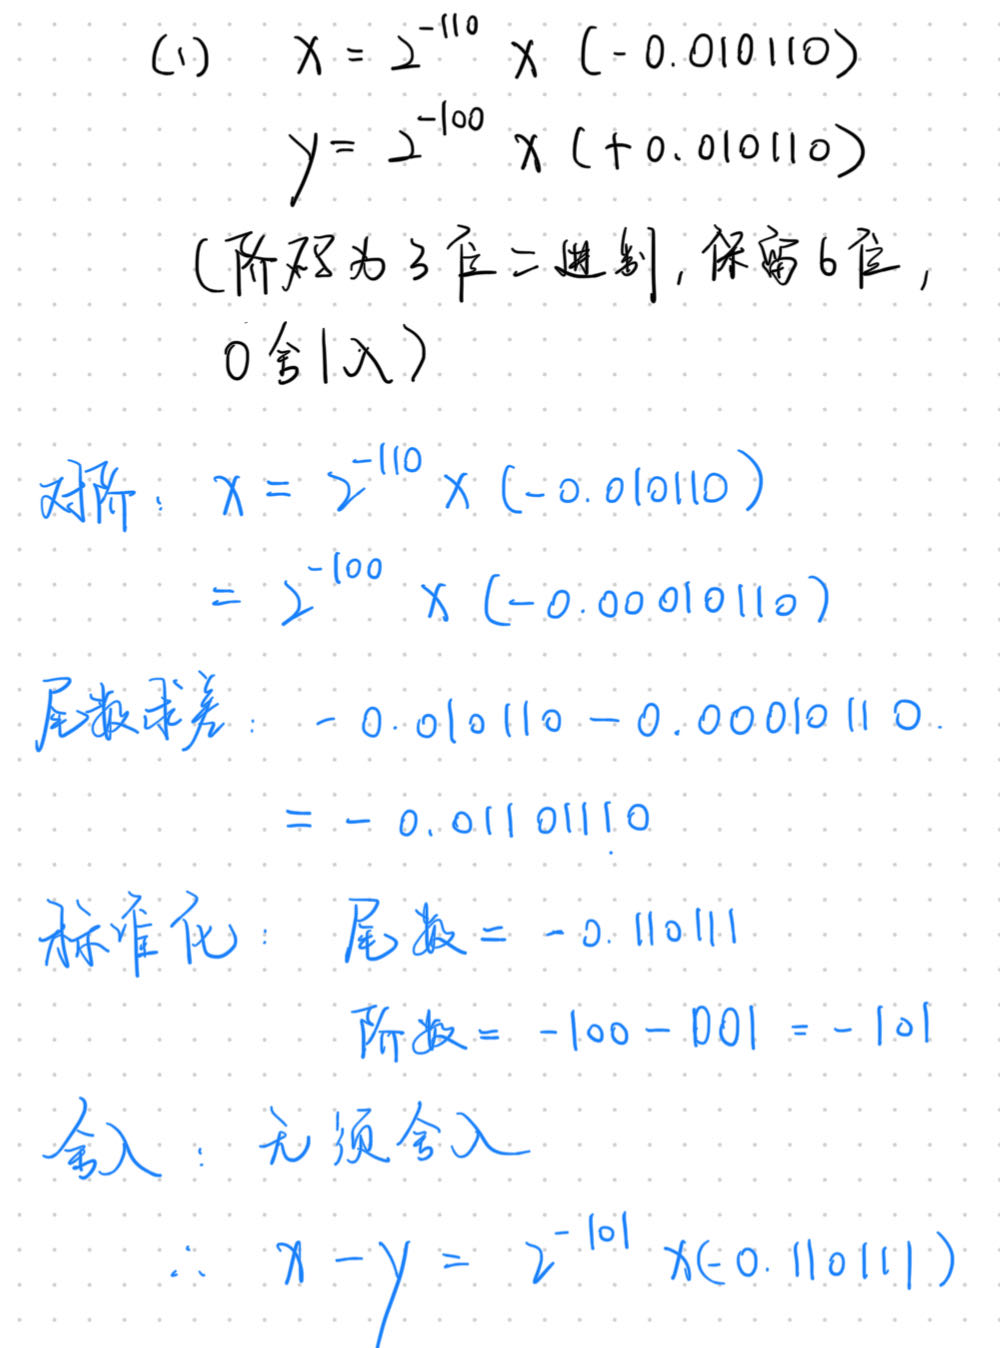 (1) x = 2^-110 × (-0.010110)
y = 2^-100 × (+0.010110)
(阶码为3位二进制,保留6位,
0舍1入)
对阶: x = 2^-110 × (-0.010110)
= 2^-100 × (-0.00010110)
尾数求差: -0.010110 - 0.00010110.
= -0.01101110
标准化: 尾数 = -0.110111
阶数 = -100 - 001 = -101
舍入: 无须舍入
∴ x - y = 2^-101 ×(-0.110111)